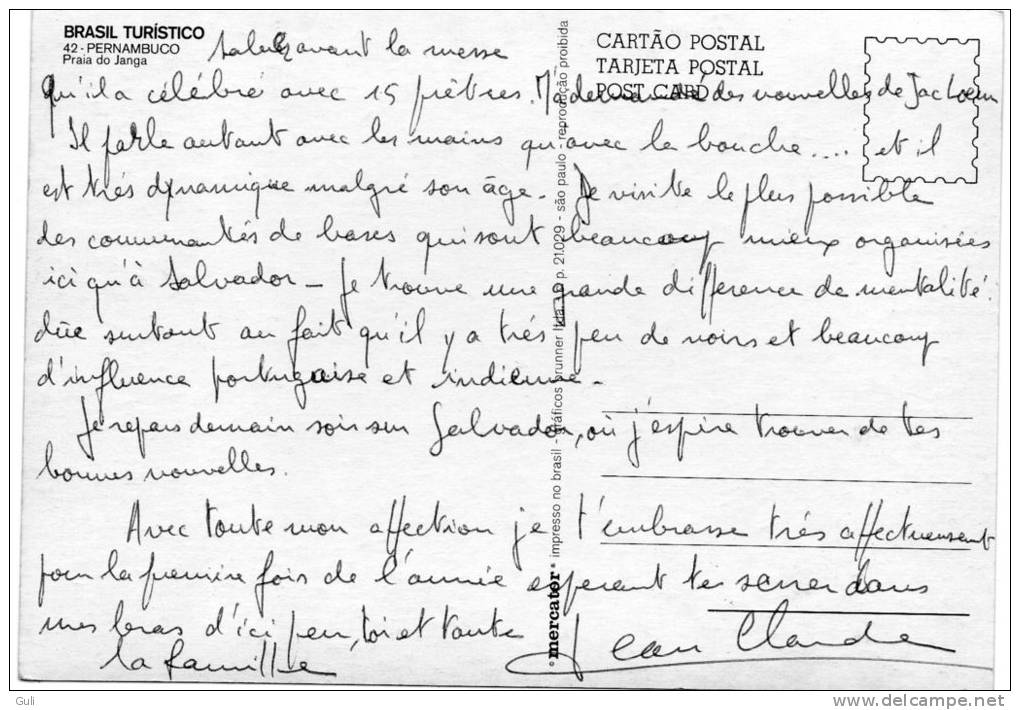 BRASIL TURÍSTICO
42 - PERNAMBUCO
Praia do Janga
CARTÃO POSTAL
TARJETA POSTAL
POST CARD
avant la messe
qu'il a célébré avec 15 prêtres. M'a demandé des nouvelles de Jac
Il parle autant avec les mains qu'avec la bouche.... et il
est très dynamique malgré son âge - Je visite le plus possible
des communautés de bases qui sont beaucoup mieux organisées
ici qu'à Salvador - Je trouve une grande différence de mentalité
dûe surtout au fait qu'il y a très peu de noirs et beaucoup
d'influence portugaise et indienne -
Je repars demain soir sur Salvador, où j'espère trouver de tes
bonnes nouvelles.
Avec toute mon affection je t'embrasse très affectueusent
pour la première fois de l'année esperant te serrer dans
mes bras d'ici peu, toi et toute
la famille
Jean Claude
mercator impresso no brasil - gráficos brunner ltda. - c p. 21029 - são paulo - reprodução proibida
Guli
delcampe.net